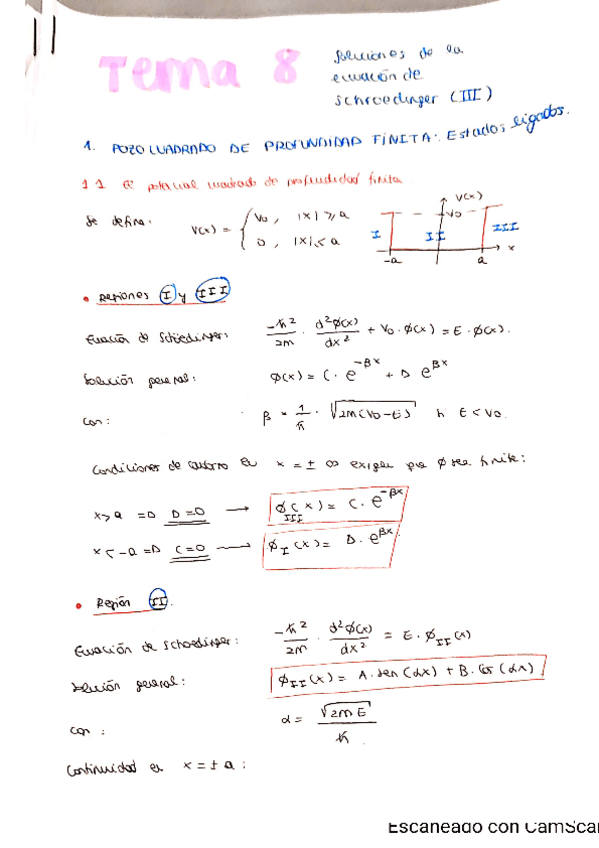 Tema 8
Soluciones de la
ecuación de
Schroedinger (III)
1. POZO CUADRADO DE PROFUNDIDAD FINITA: Estados ligados.
1.1 El potencial cuadrado de profundidad finita
Se define: V(x) = { V₀, |x| ≥ a
0, |x| < a
V(x)
V₀
I II III
-a a x
• Regiones I y III
Ecuación de Schöedinger: -ħ²/2m · d²ϕ(x)/dx² + V₀·ϕ(x) = E·ϕ(x).
Solución general: ϕ(x) = C·e^-βx + D e^βx
con: β = 1/ħ · √2m(V₀-E) E < V₀.
Condiciones de contorno en x = ± ∞ exigen que ϕ sea finita:
x > a ⇒ D=0 → ϕIII(x) = C·e^-βx
x < -a ⇒ C=0 → ϕI(x) = D·e^βx
• Región II.
Ecuación de Schoedinger: -ħ²/2m · d²ϕ(x)/dx² = E·ϕII(x)
Solución general: ϕII(x) = A·sen(αx) + B·Cos(αx)
con: α = √2mE/ħ.
Continuidad en x = ± a:
Escaneado con CamScan